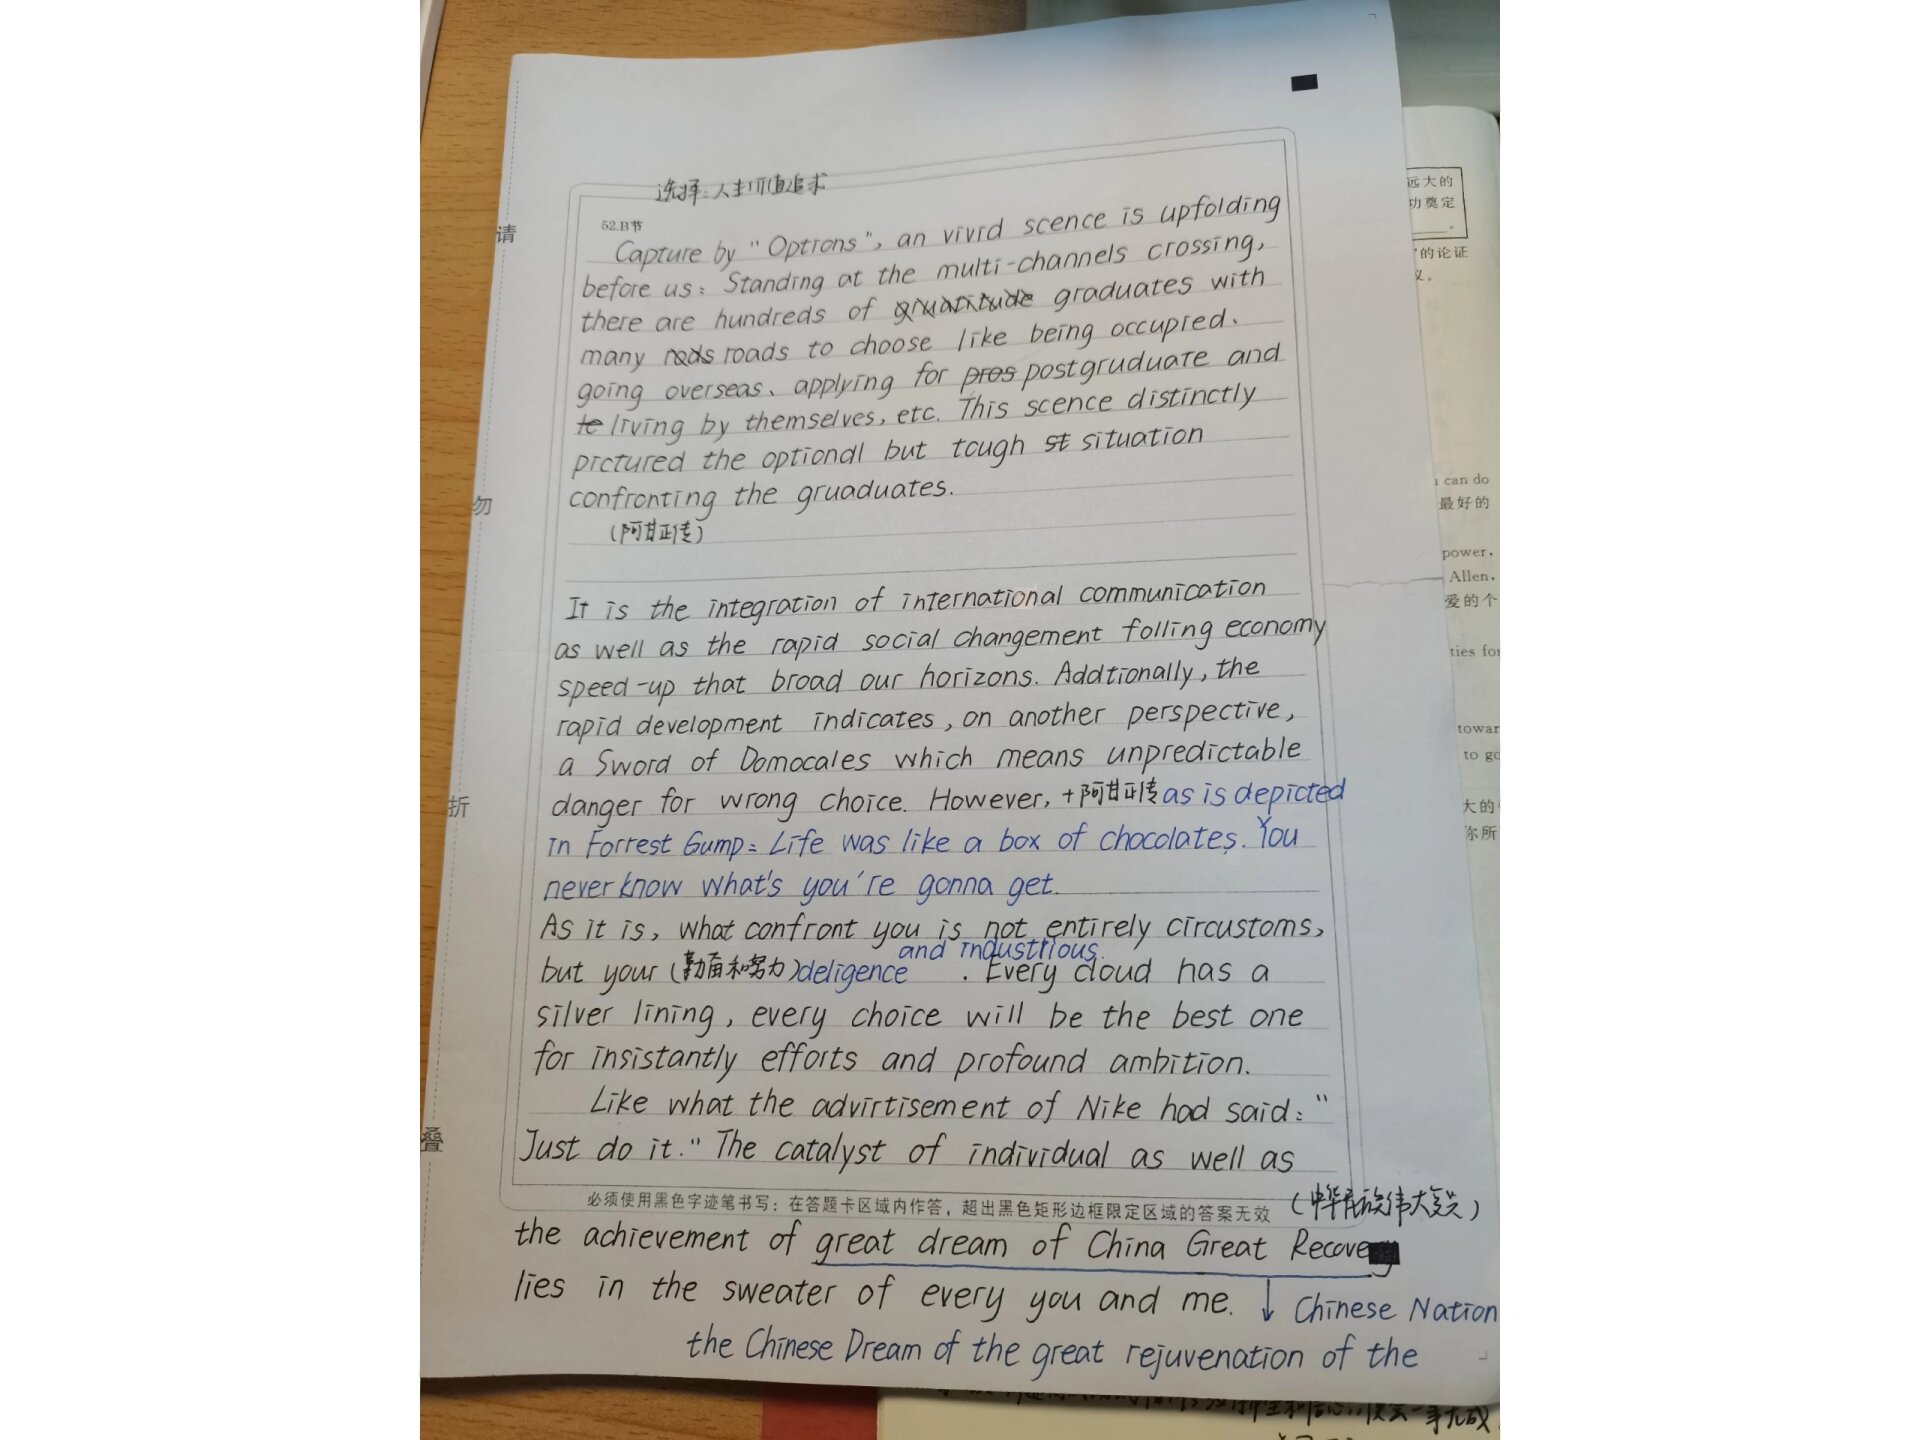 选择:人生价值追求
52.B节
Capture by "Options", an vivid scence is upfolding
before us: Standing at the multi-channels crossing,
there are hundreds of gruatitude graduates with
many rods roads to choose like being occupied、
going overseas、applying for pros postgruduate and
te living by themselves, etc. This scence distinctly
pictured the optional but tough st situation
confronting the gruaduates.
(阿甘正传)
It is the integration of international communication
as well as the rapid social changement folling economy
speed-up that broad our horizons. Addtionally, the
rapid development indicates, on another perspective,
a Sword of Domocales which means unpredictable
danger for wrong choice. However, +阿甘正传 as is depicted
in Forrest Gump: Life was like a box of chocolates. You
never know what's you're gonna get.
As it is, what confront you is not entirely circustoms,
and industrious
but your (勤奋和努力) deligence . Every cloud has a
silver lining, every choice will be the best one
for insistantly efforts and profound ambition.
Like what the advirtisement of Nike had said: "
Just do it." The catalyst of individual as well as
必须使用黑色字迹笔书写;在答题卡区域内作答,超出黑色矩形边框限定区域的答案无效
(中华民族伟大复兴)
the achievement of great dream of China Great Recovery
lies in the sweater of every you and me. ↓ Chinese Nation
the Chinese Dream of the great rejuvenation of the
请
勿
折
叠
远大的
功奠定
"的论证
义。
can do
最好的
power,
Allen,
爱的个
ties for
towar
to go
大的
你所